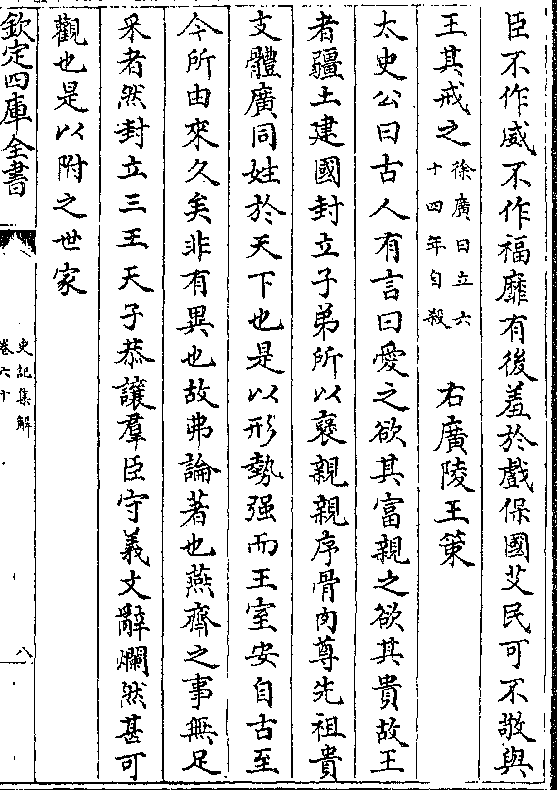 臣不作威不作福靡有後羞於戲保國艾民可不敬與
王其戒之徐廣曰立六十四年自殺 右廣陵王策
太史公曰古人有言曰愛之欲其富親之欲其貴故王
者疆土建國封立子弟所以襃親親序骨肉尊先祖貴
支體廣同姓於天下也是以形勢强而王室安自古至
今所由來久矣非有異也故弗論著也燕齊之事無足
采者然封立三王天子恭讓羣臣守義文辭爛然甚可
觀也是以附之世家
欽定四庫全書
史記集解
卷六十
八